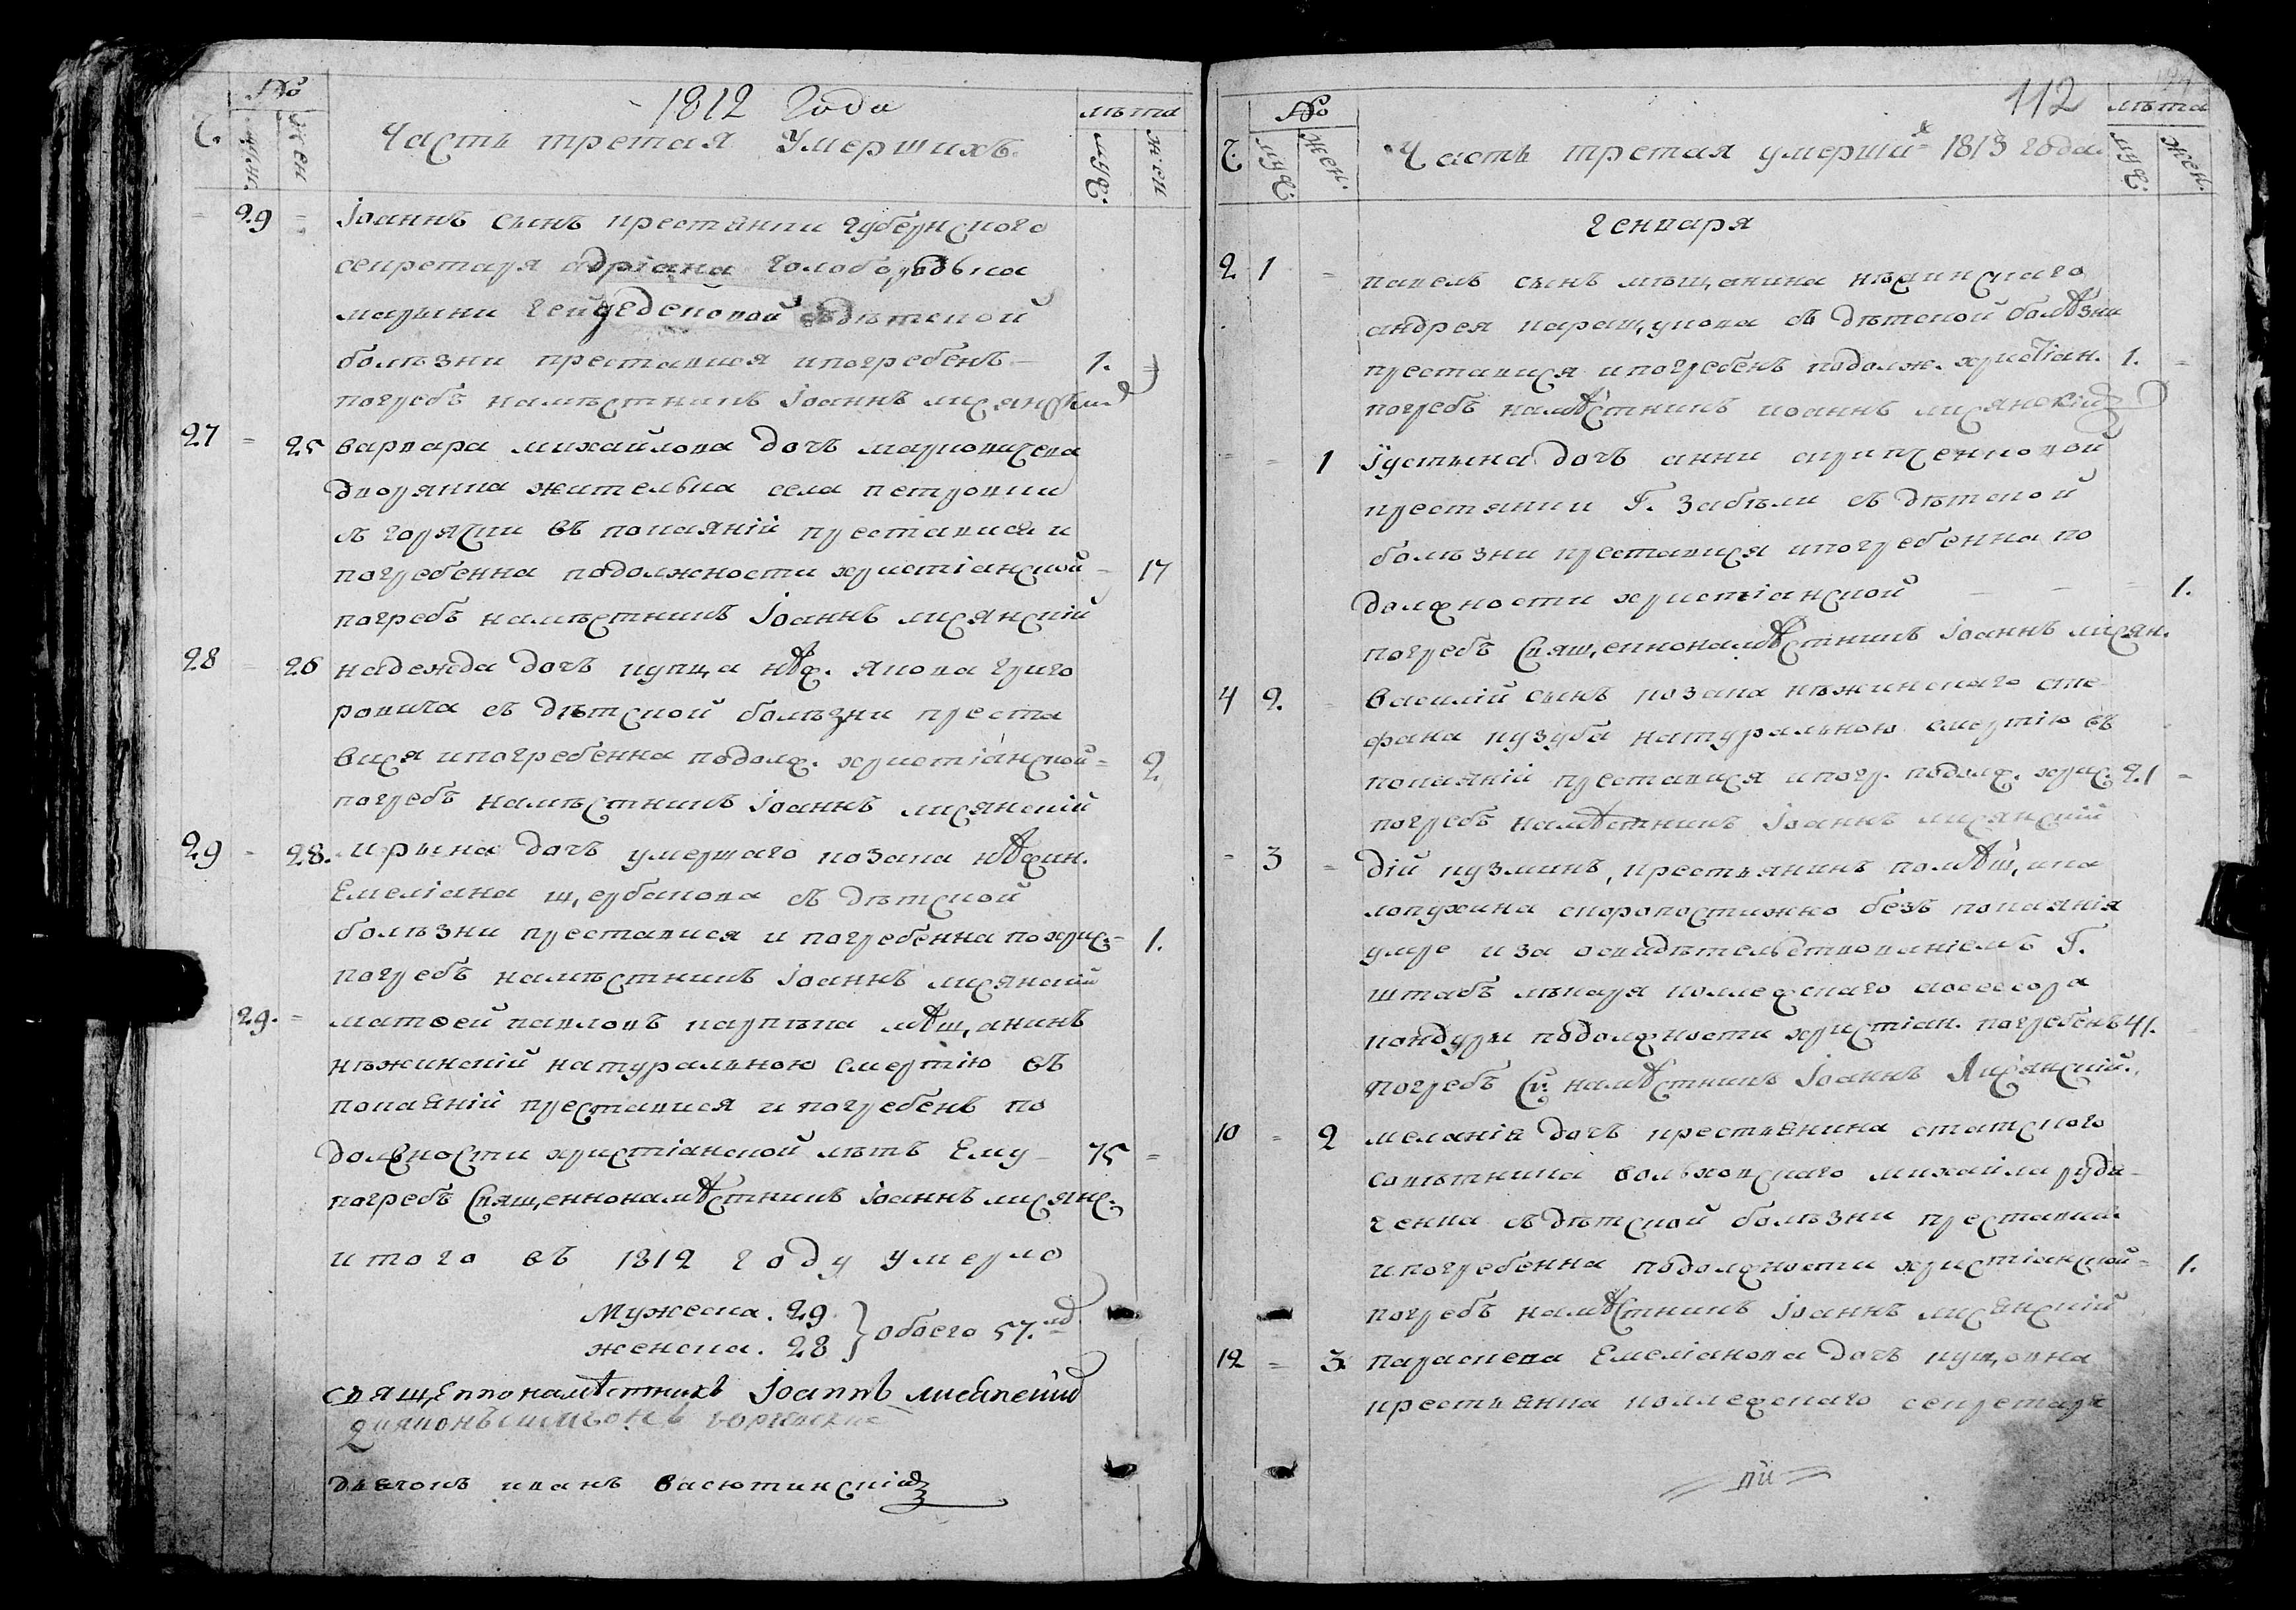 1812 Года
Часть третая Умершихъ.
№
Ч.
муж.
жен
лѣта
муж.
жен
29 Іоаннъ сынъ крестянки губернского
секретаря адріана голобородька
марыни съ дѣтской
болѣзни преставися и погребенъ 1.
погребъ намѣстникъ Іоаннъ лисянскій
27 25 варвара михайлова дочъ марковичева
дворянка жителька села петровки
съ горячки въ покаяній преставися и
погребенна по должности христіанской 17
погребъ намѣстникъ Іоаннъ лисянскій
28 26 надежда дочъ купца нѣж. якова григо
ровича съ дѣтской болѣзни преста
вися и погребенна по долж. христіанской 2.
погребъ намѣстникъ Іоаннъ лисянскій
29 28. ирына дочъ умершаго козака нѣжин.
Емеліана щербакова съ дѣтской
болѣзни преставися и погребенна по хрис. 1.
погребъ намѣстникъ Іоаннъ лисянскій
29. матѳей павловъ карпѣка мѣщанинъ
нѣжинскій натуральною смертію въ
покаяній преставися и погребенъ по
должности христіанской лѣтъ Ему 75
погребъ Священнонамѣстникъ Іоаннъ лисянс.
итого въ 1812 году умерло
Мужеска. 29
женска. 28 } обоего 57.
священнонамѣстникъ Іоаннъ лисянскій
дияконъ иванъ Васютинскій
112
Часть третая умерших 1813 года
№
Ч.
муж.
жен.
лѣта
муж.
жен.
Генваря
2 1 павелъ сынъ мѣщанина нѣжинскаго
андрея паращукова съ дѣтской болѣзни
преставися и погребенъ по долж. христіан. 1.
погребъ намѣстникъ иоаннъ лисянскій
1 Іустына дочъ анни скрипченковой
крестянки Г. Забѣли съ дѣтской
болѣзни преставися и погребенна по
должности христіанской 1.
погребъ Священнонамѣстникъ Іоаннъ лисян.
4 2. Василій сынъ козака нѣжинскаго сте
фана кузуба натуральною смертію въ
покаяній преставися и погр. по долж. хрис. 21
погребъ намѣстникъ Іоаннъ лисянскій
3 дій кузминъ, крестьянинъ помѣщика
лопухина скоропостижно безъ покаянія
умре и за освидѣтельствованіемъ Г.
штабъ лѣкаря коллежскаго ассессора
кондуры по должности христіан. погребенъ 41.
погребъ Св: намѣстникъ Іоаннъ Лисянскій.
10 2 меланія дочъ крестьянина статского
совѣтника вольховскаго михайла руда
ченка съ дѣтской болѣзни преставися
и погребенна по должности христіанской 1.
погребъ намѣстникъ Іоаннъ лисянскій
12 3. параскева Емеліанова дочъ кущовна
крестьянка коллежскаго секретаря